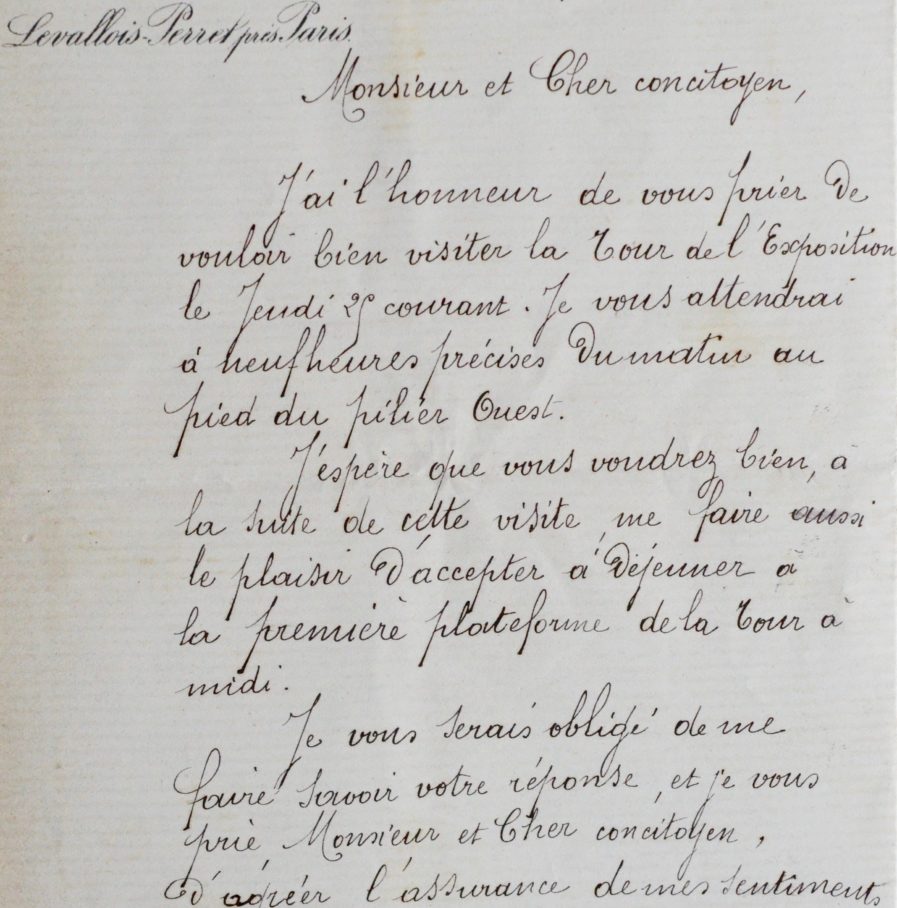 Levallois-Perret près Paris
Monsieur et Cher concitoyen,
J'ai l'honneur de vous prier de
vouloir bien visiter la Tour de l'Exposition
le Jeudi 25 courant. Je vous attendrai
à neuf heures précises du matin au
pied du pilier Ouest.
J'espère que vous voudrez bien, à
la suite de cette visite, me faire aussi
le plaisir d'accepter à déjeuner à
la première plateforme de la Tour à
midi.
Je vous serais obligé de me
faire savoir votre réponse, et je vous
prie Monsieur et Cher concitoyen,
d'agréer l'assurance de mes sentiments